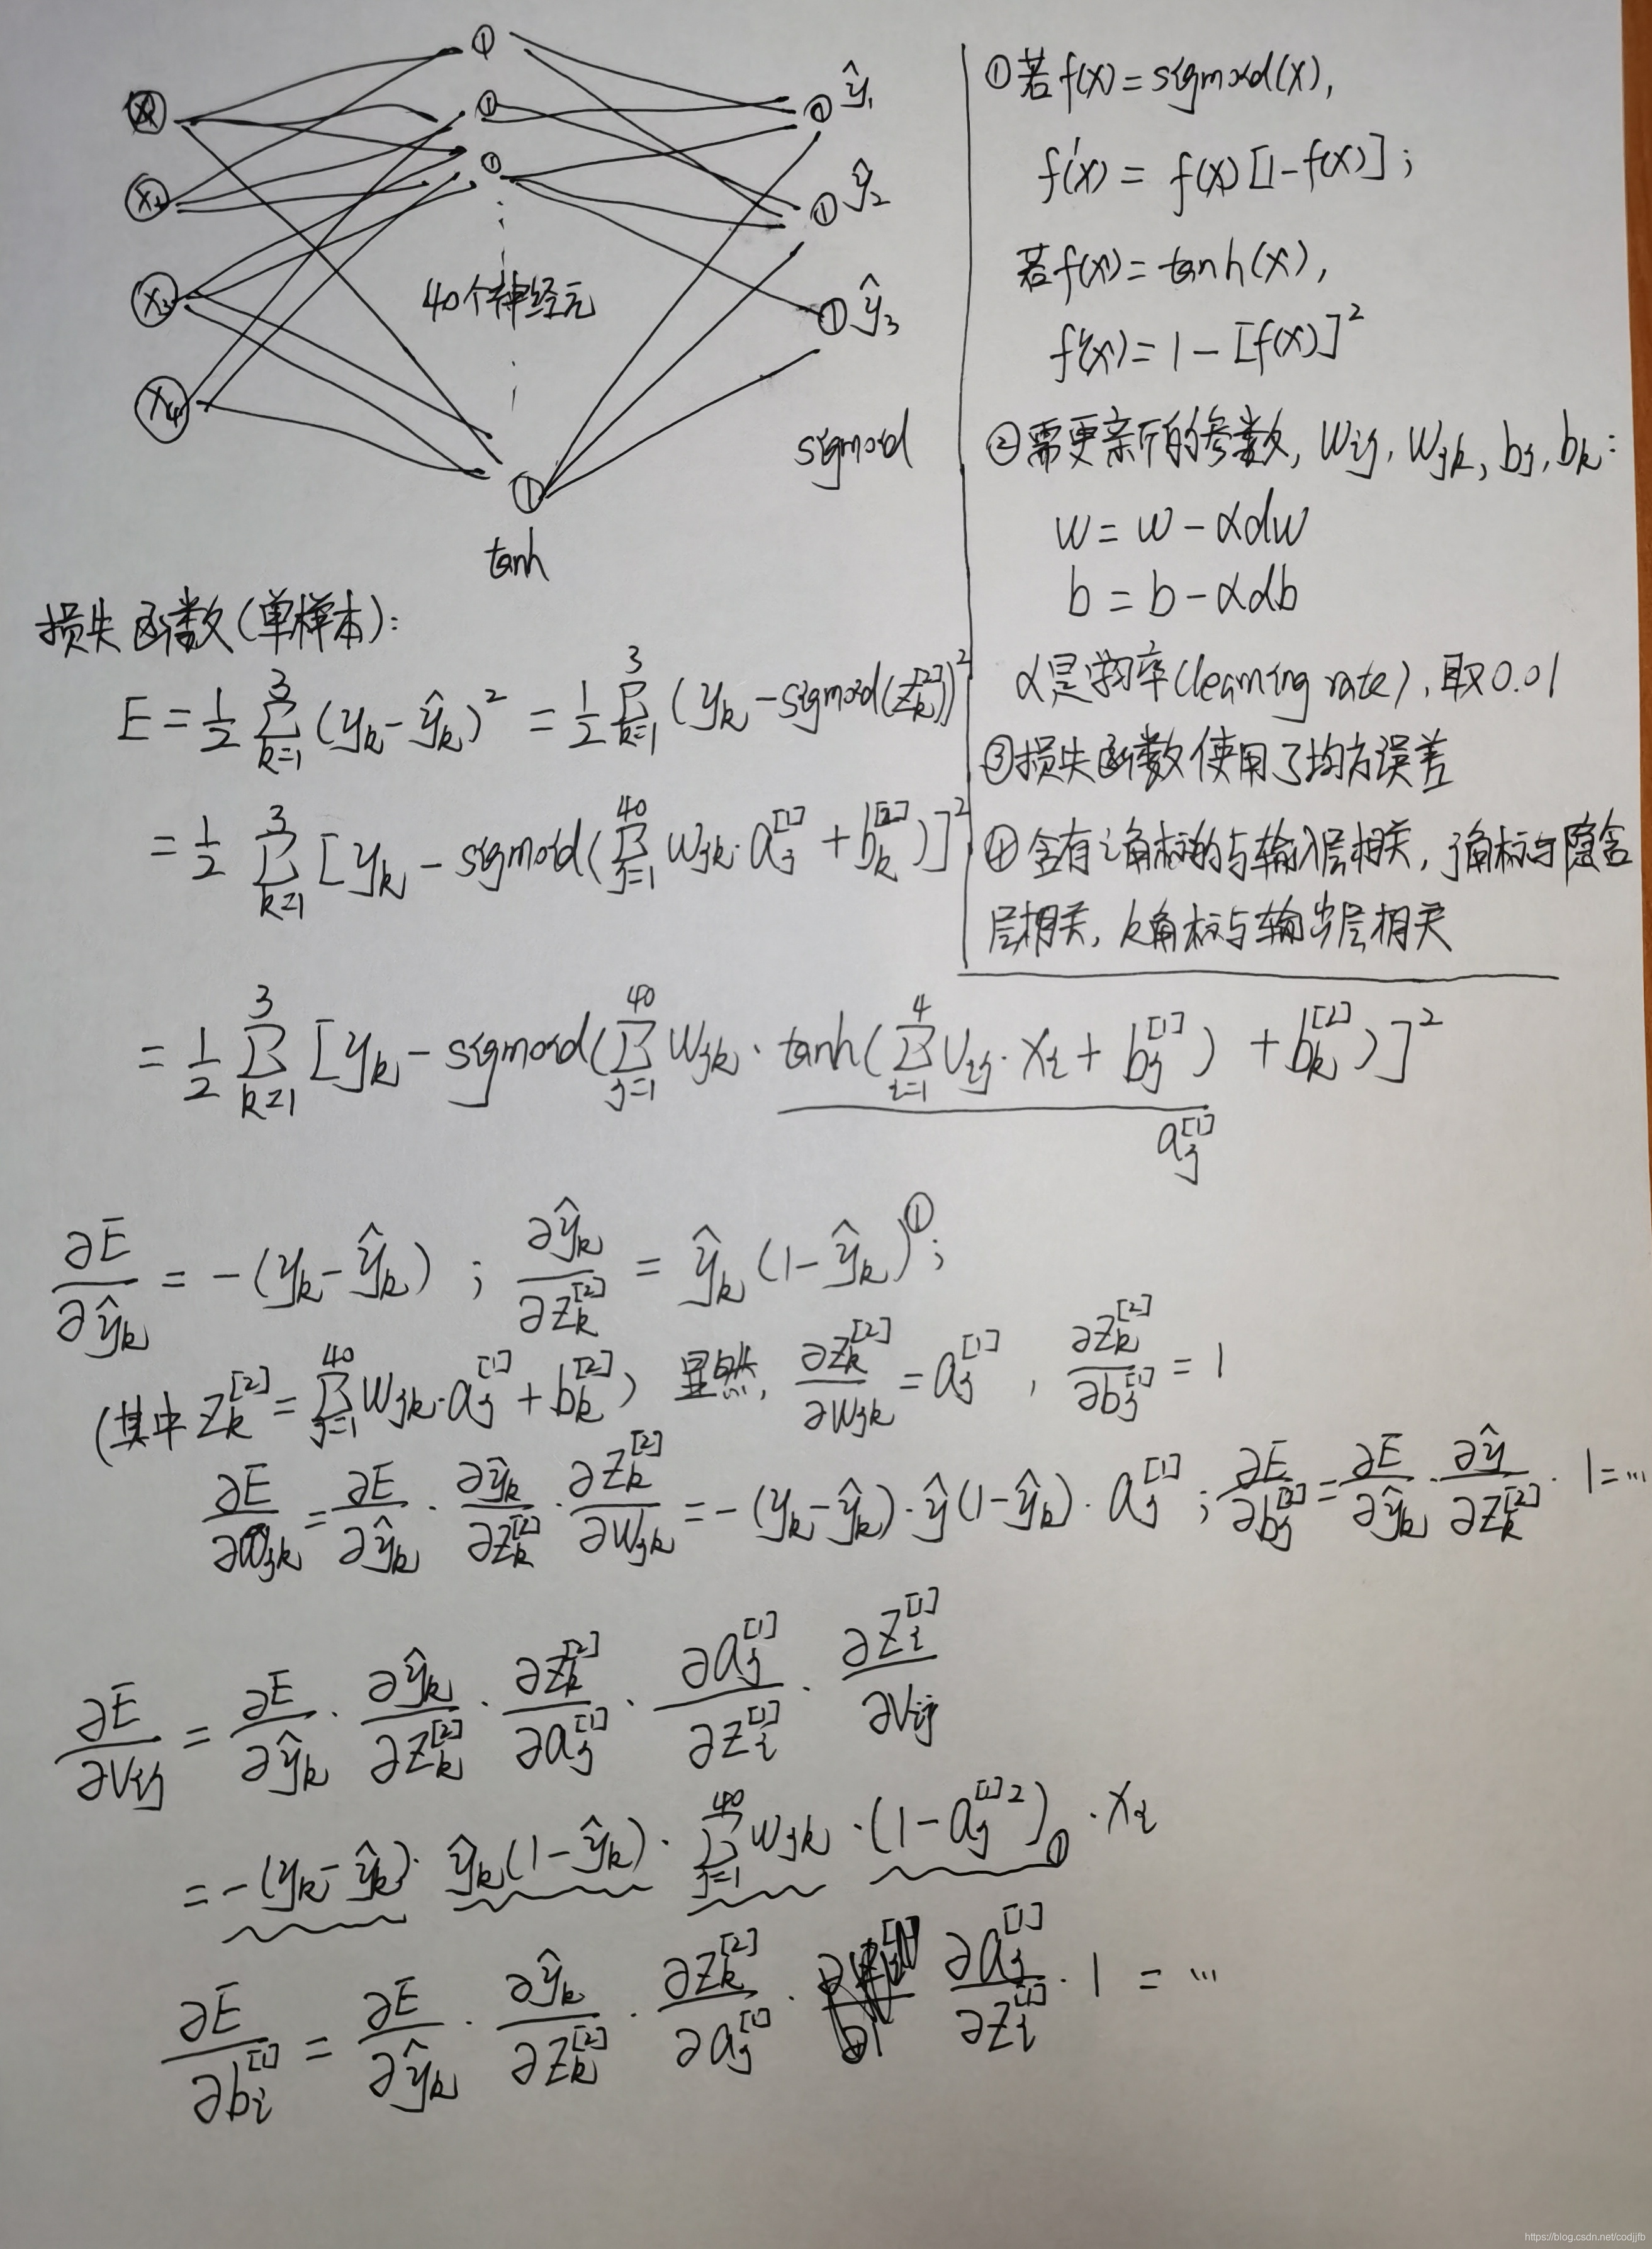 x₁
x₂
x₃
x₄
① ŷ₁
① ŷ₂
① ŷ₃
40个神经元
sigmoid
tanh
①若f(x)=sigmoid(x),
f'(x) = f(x)[1-f(x)];
若f(x)=tanh(x),
f'(x)=1-[f(x)]²
②需更新的参数, wij, wjk, bj, bk:
w = w - αdw
b = b - αdb
α是学习率(learning rate), 取0.01
③损失函数使用了均方误差
④含有i角标的与输入层相关, j角标与隐含
层相关, k角标与输出层相关
损失函数(单样本):
E = 1/2 Σ_{k=1}^{3} (yk-ŷk)² = 1/2 Σ_{k=1}^{3} (yk-sigmoid(zk^[2]))²
= 1/2 Σ_{k=1}^{3} [yk - sigmoid(Σ_{j=1}^{40} wjk·aj^[1] + bk^[2])]²
= 1/2 Σ_{k=1}^{3} [yk - sigmoid(Σ_{j=1}^{40} wjk · tanh(Σ_{i=1}^{4} vij·xi + bj^[1]) + bk^[2])]²
aj^[1]
∂E/∂ŷk = -(yk-ŷk) ; ∂ŷk/∂zk^[2] = ŷk(1-ŷk)^①;
(其中 zk^[2] = Σ_{j=1}^{40} wjk·aj^[1] + bk^[2]) 显然, ∂zk^[2]/∂wjk = aj^[1] , ∂zk^[2]/∂bj^[1] = 1
∂E/∂wjk = ∂E/∂ŷk · ∂ŷk/∂zk^[2] · ∂zk^[2]/∂wjk = -(yk-ŷk)·ŷ(1-ŷk)·aj^[1] ; ∂E/∂bj^[2] = ∂E/∂ŷk · ∂ŷ/∂zk^[2] · 1 = ...
∂E/∂vij = ∂E/∂ŷk · ∂ŷk/∂zk^[2] · ∂zk^[2]/∂aj^[1] · ∂aj^[1]/∂zi^[1] · ∂zi^[1]/∂vij
= -(yk-ŷk)·ŷk(1-ŷk)·Σ_{j=1}^{40} wjk·(1-aj^[1]2)① ·xi
∂E/∂bi^[1] = ∂E/∂ŷk · ∂ŷk/∂zk^[2] · ∂zk^[2]/∂aj^[1] · ∂aj^[1]/∂zi^[1] · 1 = ...
https://blog.csdn.net/codjjfb